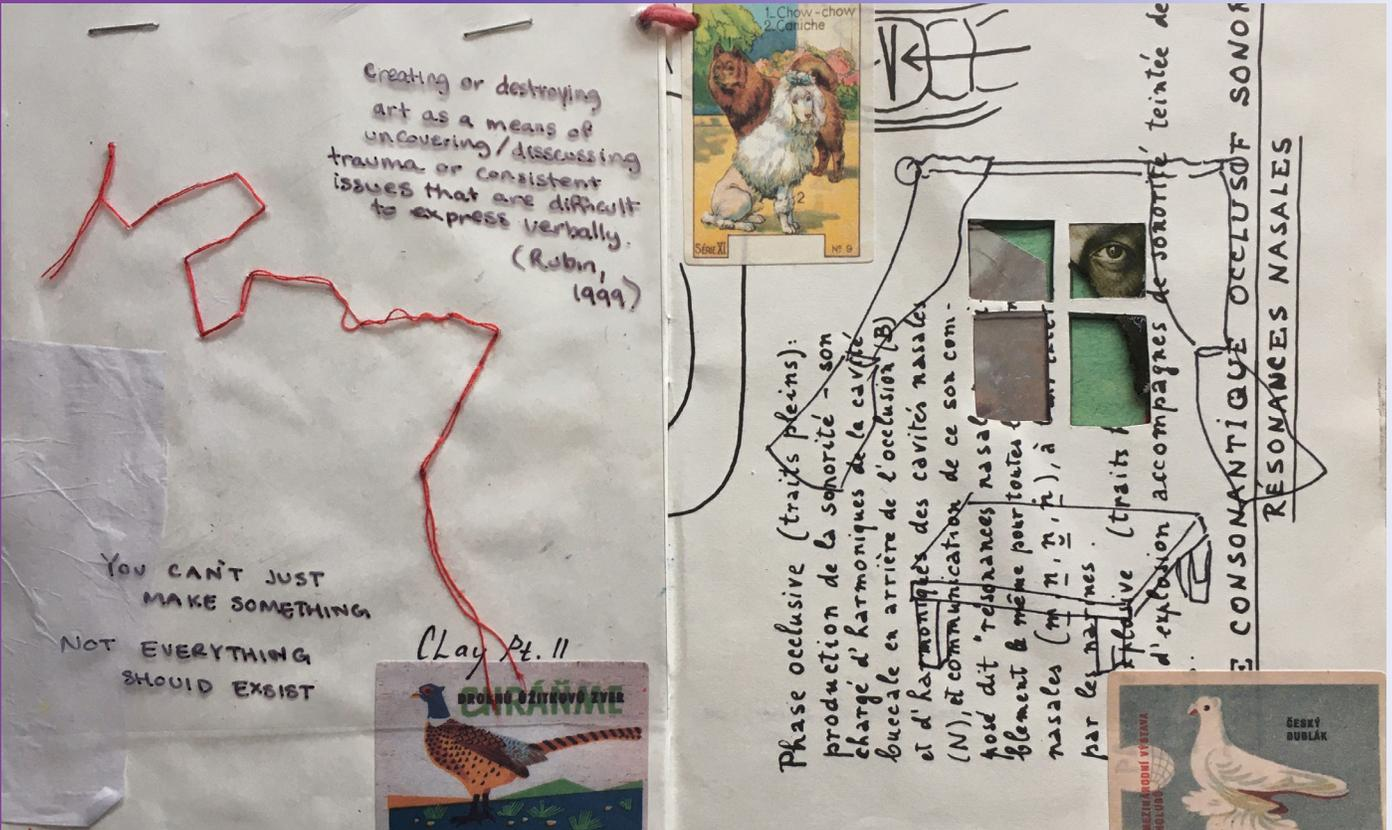 Creating or destroying
art as a means of
uncovering/disscussing
trauma or consistent
issues that are difficult
to express verbally.
(Rubin,
1999)
YOU CAN'T JUST
MAKE SOMETHING
NOT EVERYTHING
SHOUlD EXSIST
CLay Pt. II
DROBNÚ ÚŽITKOVÚ ZVER
CHRÁŇME
1_Chow-chow
2_Caniche
2
SÉRIE XI
No 9
E CONSONANTIQUE OCCLUSOF SONOR
RÉSONANCES NASALES
Phase occlusive (traits pleins):
production de la sonorité - son
chargé d'harmoniques de la cavité
buccale en arrière de l'occlusion (B)
et d'harmoniques des cavités nasales
(N), et communication de ce son com-
posé dit "résonances nasal
blement le même pour toutes
nasales (m, n, ṇ, ň), à
par les narines.
explosive (traits
d'explosion accompagnés de sonorité teintée de
ČESKÝ
BUBLÁK
MEZINÁRODNÍ VÝSTAVA
HOLUBŮ